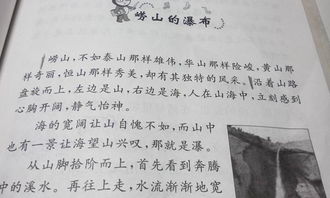 崂山的瀑布
崂山，不如泰山那样雄伟，华山那样险峻，黄山那
样奇丽，恒山那样秀美，却有其独特的风采。沿着山路
盘旋而上，左边是山，右边是海，人在山海中，立刻感到
心胸开阔，静气怡神。
海的宽阔让山自愧不如，而山中
也有一景让海望山兴叹，那就是瀑。
从山脚拾阶而上，首先看到奔腾
中的溪水。再往上走，水流渐渐地宽